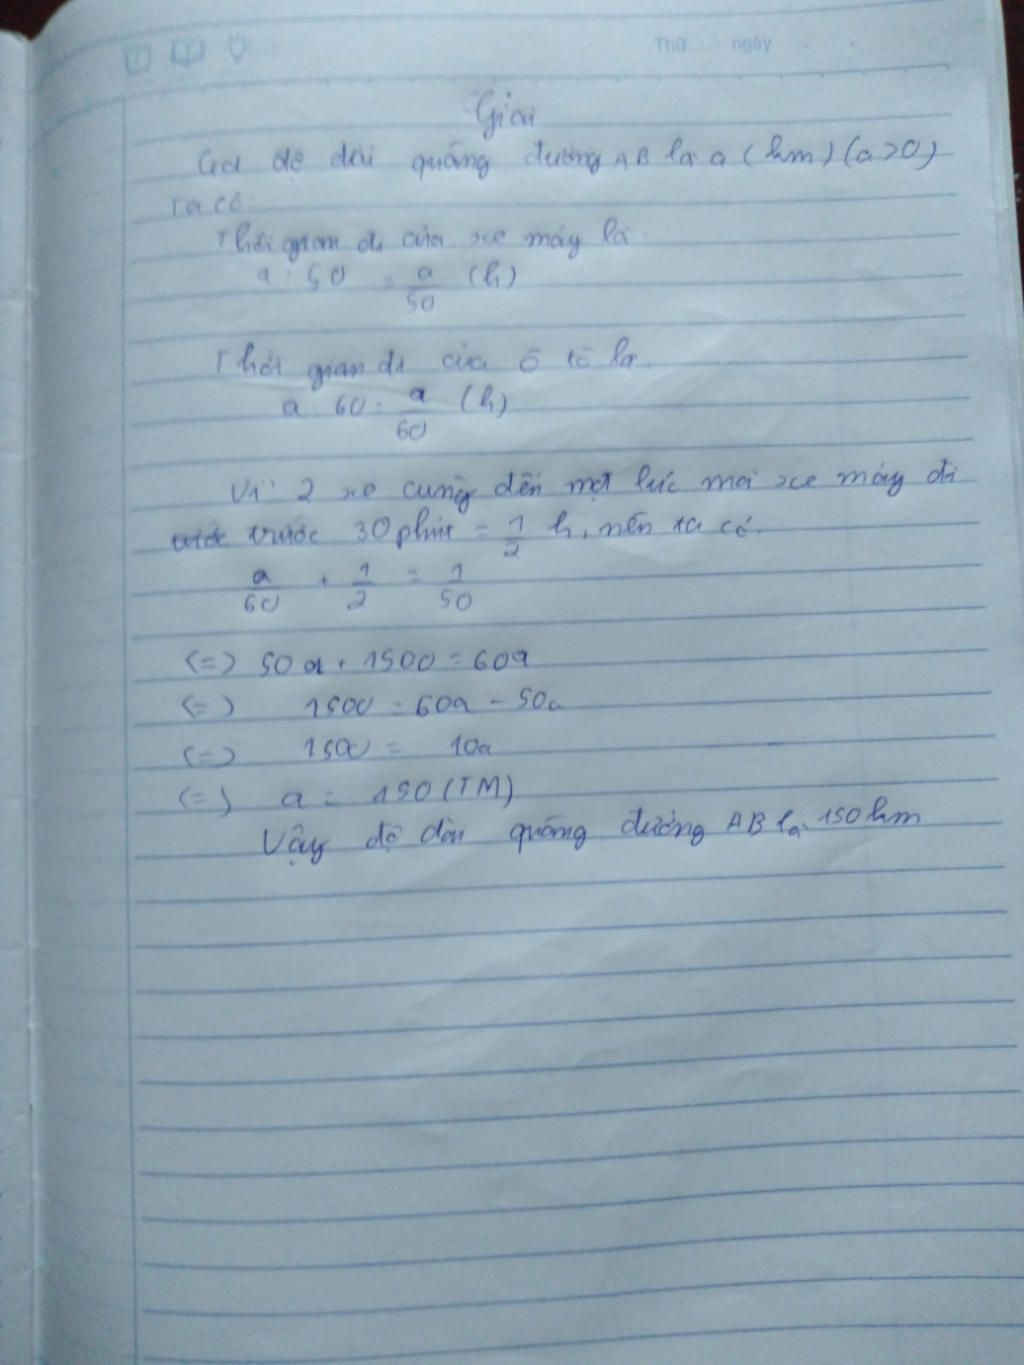 Thứ ngày
Giải
Gọi độ dài quãng đường AB là a (km) (a>0)
Ta có
Thời gian đi của xe máy là
a : 50 = a/50 (h)
Thời gian đi của ô tô là
a : 60 = a/60 (h)
Vì 2 xe cùng đến một lúc mà xe máy đi
trước 30 phút = 1/2 h, nên ta có.
a/60 + 1/2 = 1/50
(=) 50a + 1500 = 60a
(=) 1500 = 60a - 50a
(=) 1500 = 10a
(=) a = 150 (TM)
Vậy độ dài quãng đường AB là 150 km